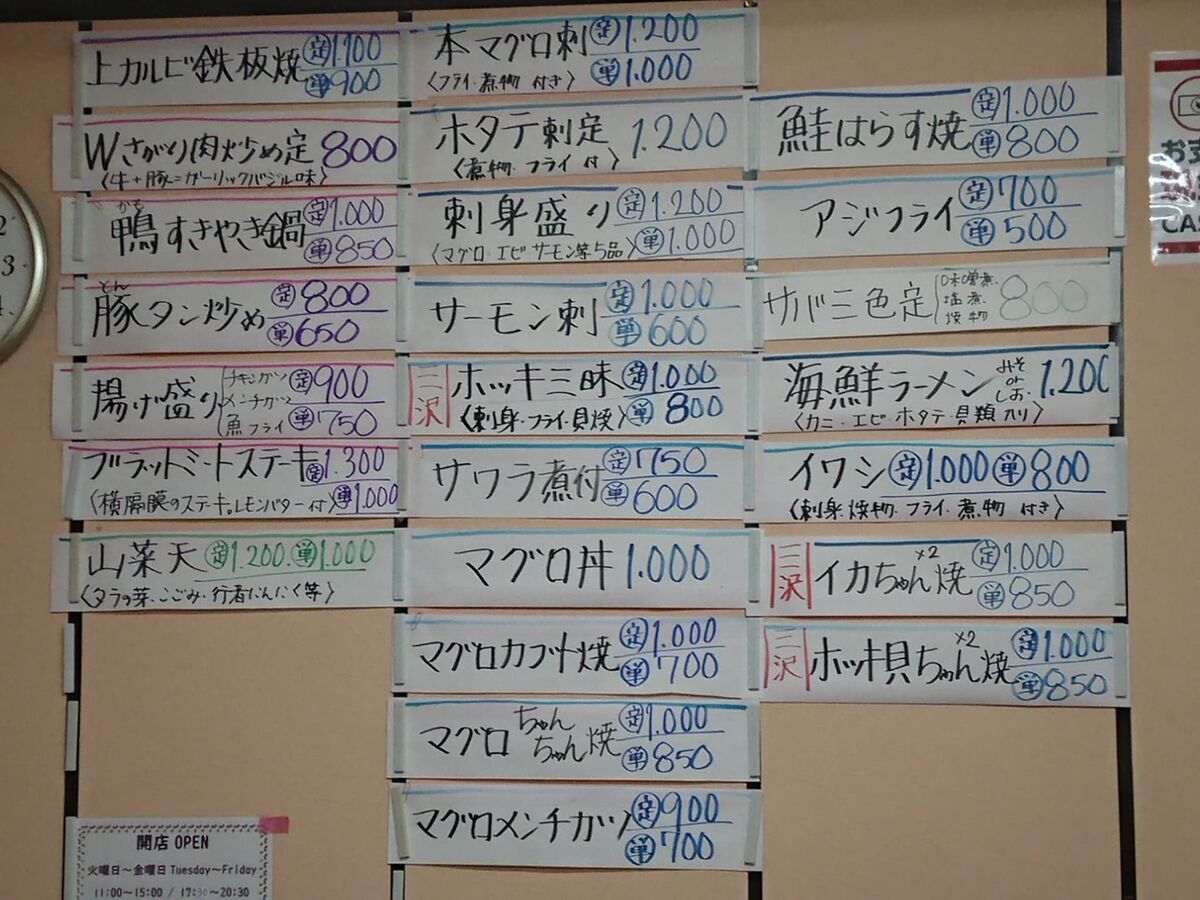 上カルビ鉄板焼 定1.100
単900
Wさがり肉炒め定 800
〈牛+豚=ガーリックバジル味〉
かも
鴨すきやき鍋 定1.000
単850
とん
豚タン炒め 定800
単650
揚げ盛り チキンカツ メンチカツ 魚フライ 定900
単750
ブラットミートステーキ 定1.300
〈横隔膜のステーキ。レモンバター付〉 単1.000
山菜天 定1.200. 単1.000
〈タラの菜・こごみ・行者にんにく等〉
本マグロ刺 定1.200
〈フライ・煮物 付き〉 単1.000
ホタテ刺定 1.200
〈煮物・フライ付〉
刺身盛り 定1.200
〈マグロ・エビ サーモン等5品〉 単1.000
サーモン刺 定1.000
単600
三沢 ホッキ三昧 定1.000
〈刺身・フライ・貝焼〉 単800
サワラ煮付 定750
単600
マグロ丼 1.000
マグロカブト焼 定1.000
単700
マグロちゃんちゃん焼 定1.000
単850
マグロメンチカツ 定900
単700
鮭はらす焼 定1.000
単800
アジフライ 定700
単500
サバ三色定 味噌煮. 塩煮. 焼物 800
海鮮ラーメン みそ or しお. 1.200
〈カニ・エビ・ホタテ・貝類入り〉
イワシ 定1.000 単800
〈刺身・焼物・フライ・煮物 付き〉
三沢 イカちゃん×2焼 定1.000
単850
三沢 ホッキ貝ちゃん×2焼 定1.000
単850
2
3
4
開店 OPEN
火曜日～金曜日 Tuesday～Friday
11:00～15:00 / 17:30～20:30
おす
CA